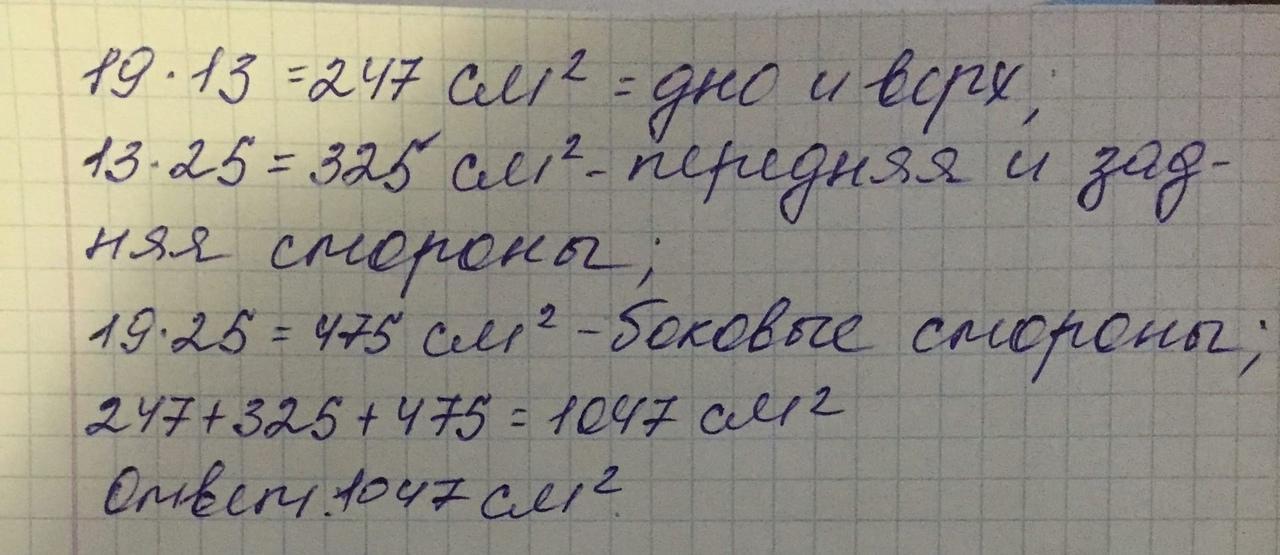 19·13 = 247 см² = дно и верх;
13·25 = 325 см² - передняя и зад-
няя стороны;
19·25 = 475 см² - боковые стороны;
247+325+475 = 1047 см²
Ответ: 1047 см².